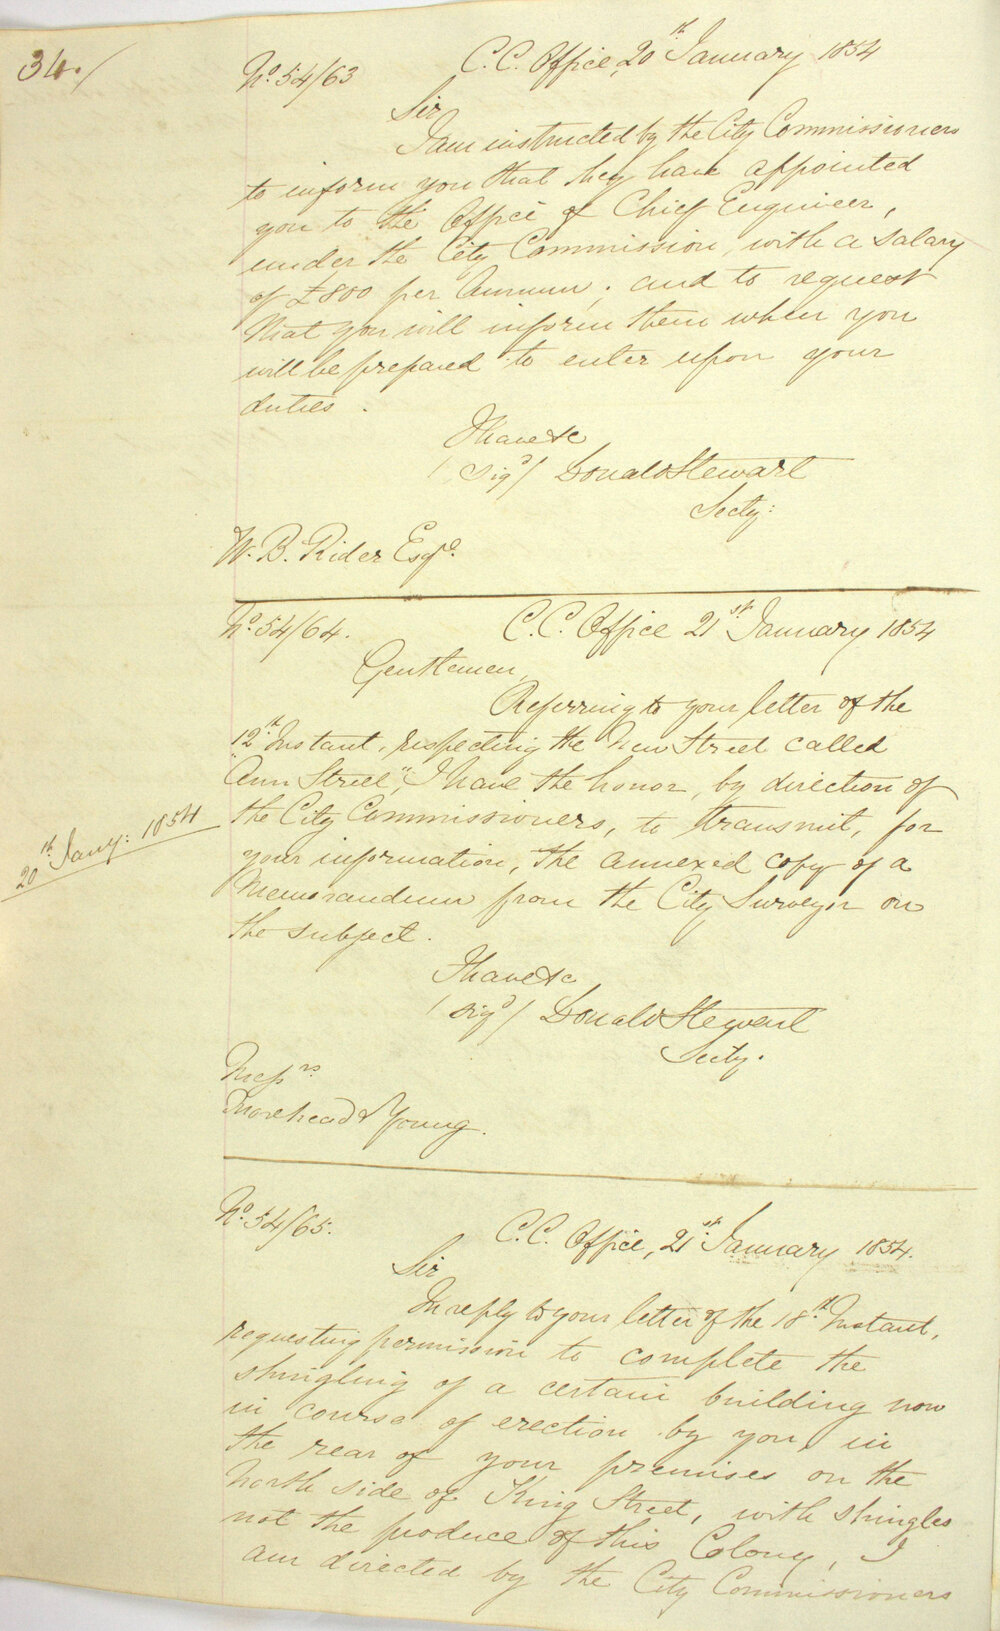 34./
No. 54/63 C. C. Office, 20th January 1854
Sir
I am instructed by the City Commissioners
to inform you that they have appointed
you to the Office of Chief Engineer,
under the City Commission, with a salary
of £800 per Annum; and to request
that you will inform them when you
will be prepared to enter upon your
duties.
I have &c
/sigd/ Donald Stewart
Secty:
W. B. Rider Esqre.
No. 54/64. C. C. Office 21st January 1854
Gentlemen,
Referring to your letter of the
12th Instant, respecting the New Street called
"Ann Street", I have the honor, by direction of
the City Commissioners, to transmit, for
20th Jany: 1854
your information, the annexed copy of a
Memorandum from the City Surveyor on
the subject.
I have &c
/sigd/ Donald Stewart
Secty.
Messrs
Morehead & Young.
No. 54/65. C. C. Office, 21st January 1854.
Sir
In reply to your letter of the 18th Instant,
requesting permission to complete the
shingling of a certain building now
in course of erection by you, in
the rear of your premises on the
North side of King Street, with shingles
not the produce of this Colony, I
am directed by the City Commissioners